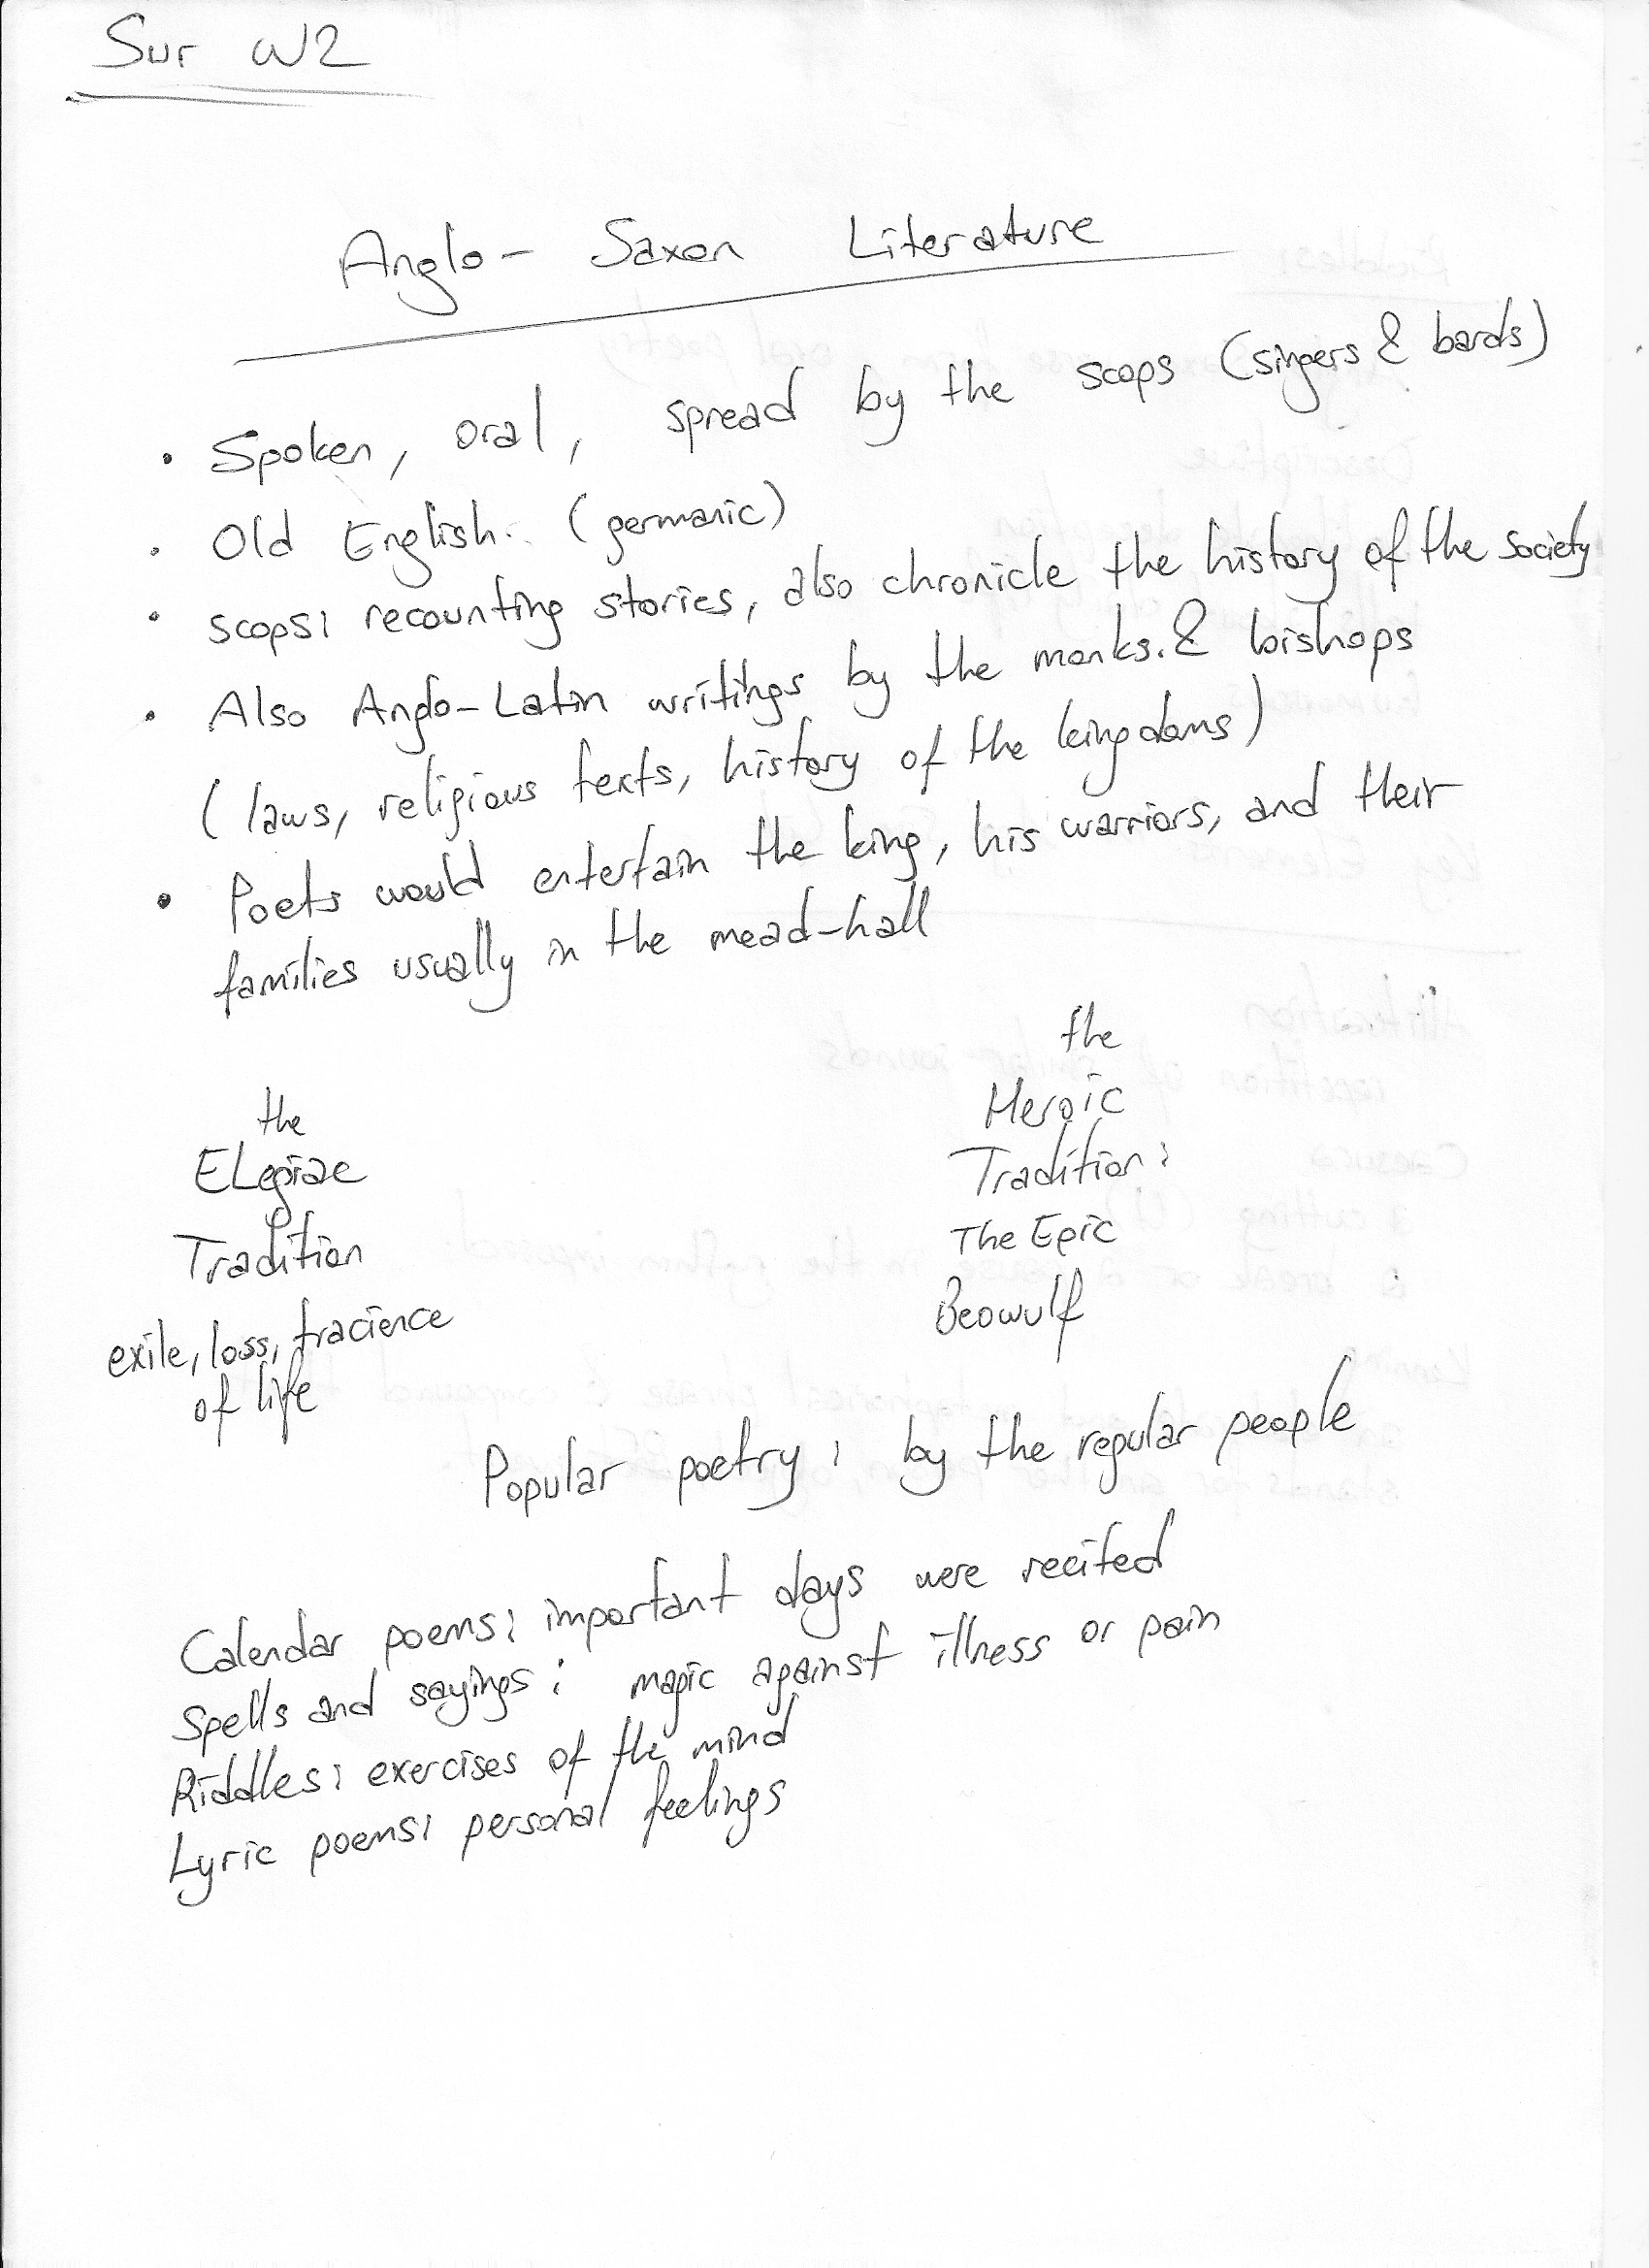 Sur W2
Anglo-Saxon Literature
• Spoken, oral, spread by the scops (singers & bards)
• Old English. (germanic)
• scops: recounting stories, also chronicle the history of the society
• Also Anglo-Latin writings by the monks. & bishops
( laws, religious texts, history of the kingdoms)
• Poets would entertain the king, his warriors, and their
families usually in the mead-hall
the
ELegiac
Tradition
exile, loss, tracience
of life
the
Heroic
Tradition:
The Epic
Beowulf
Popular poetry: by the regular people
Calendar poems: important days were recited
Spells and sayings: magic against illness or pain
Riddles: exercises of the mind
Lyric poems: personal feelings